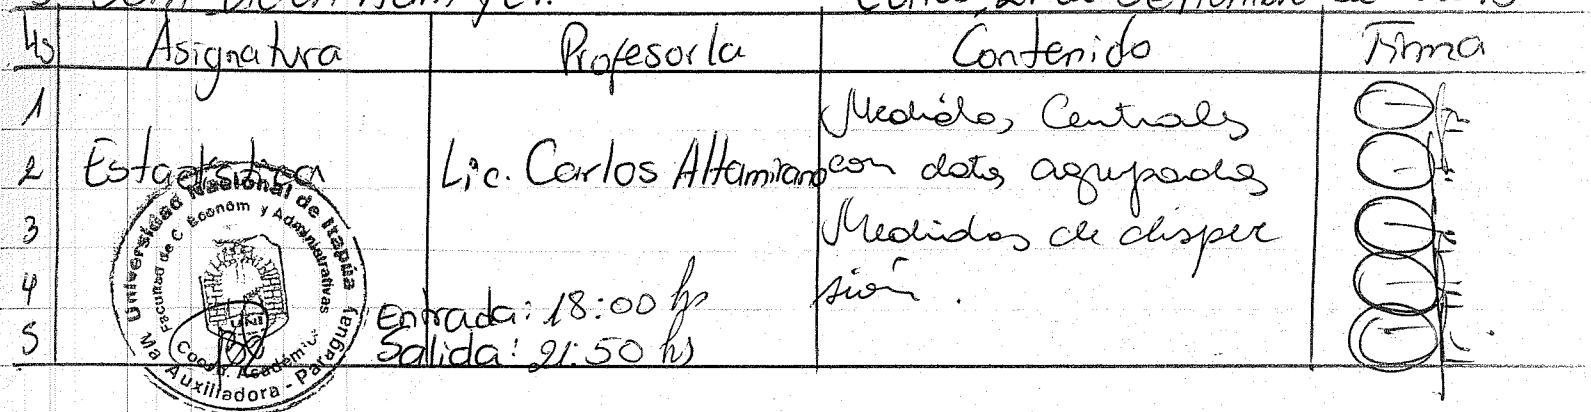 Hs Asignatura Profesor/a Contenido Firma
1 Medidas Centrales
2 Estadística Lic. Carlos Altamirano con datos agrupados
3 Medidas de disper
4 sión.
Entrada: 18:00 hs
5 Salida: 21:50 hs
Universidad Nacional de Itapúa
Facultad de C. Econom y Administrativas
UNI
Coord. Académic
Ma Auxiliadora - Paraguay